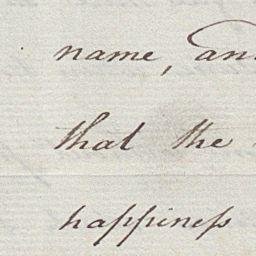 name, an
that the
happineſs